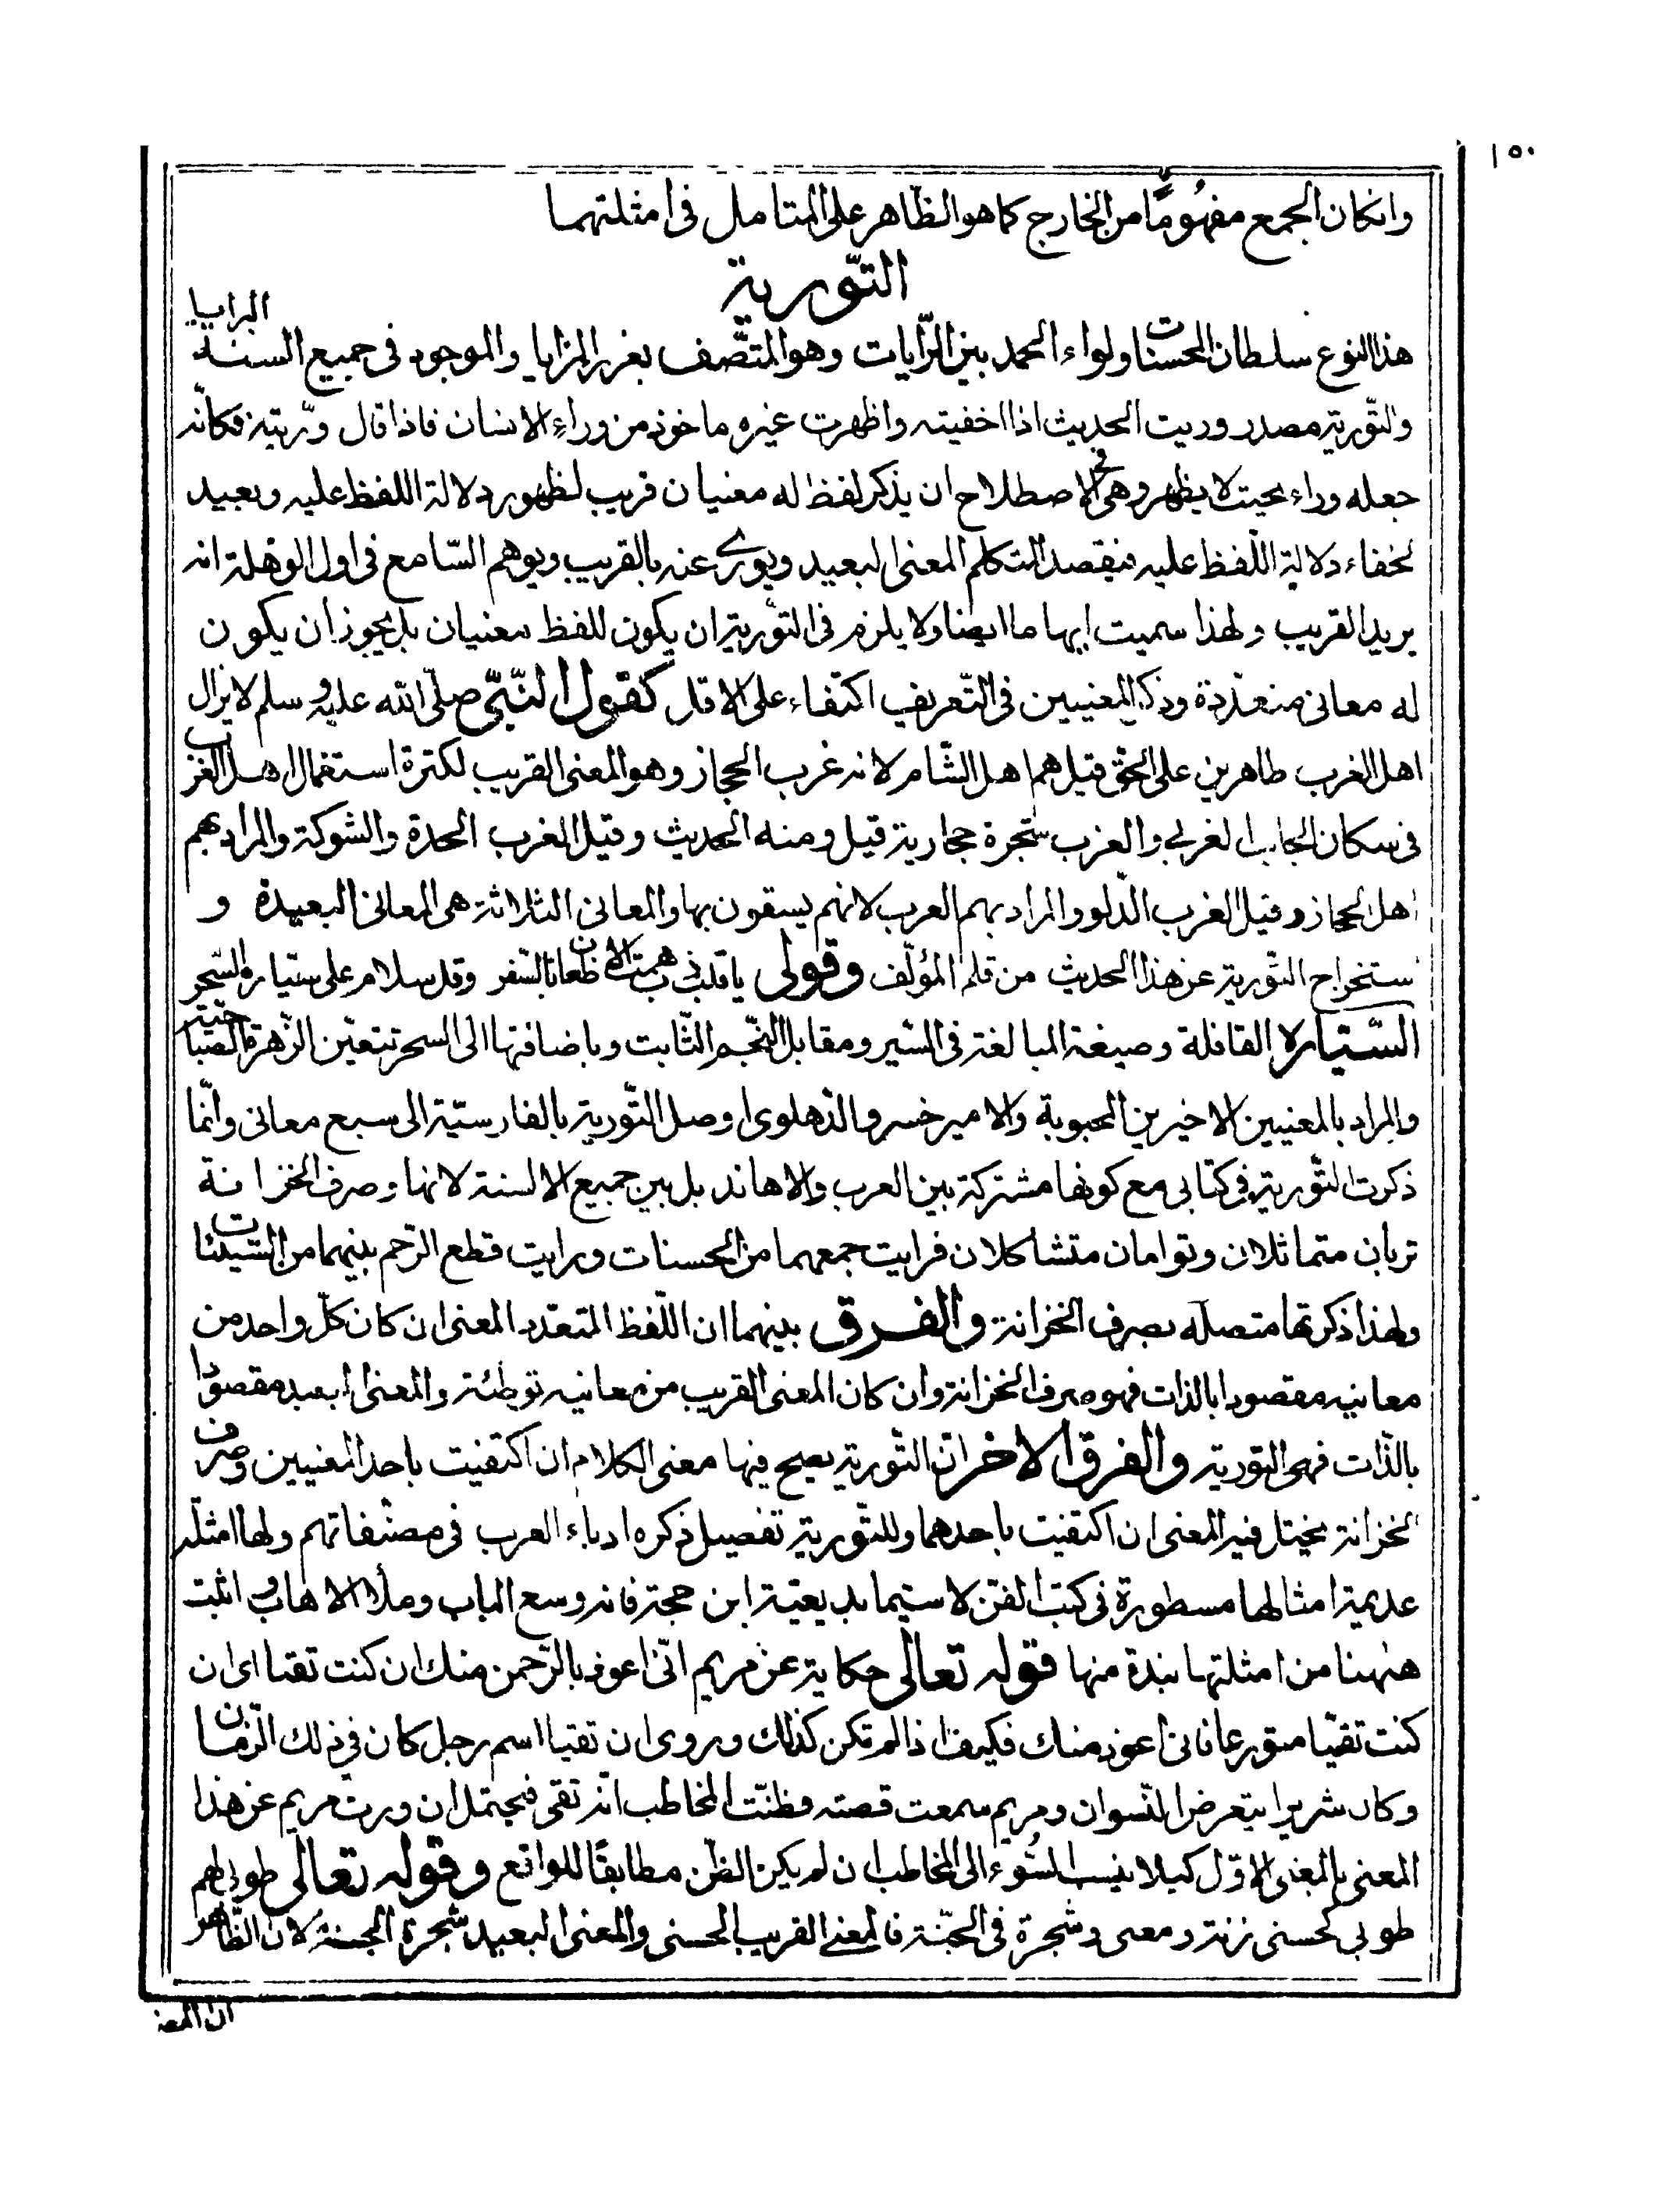 ١٥٠
وانكان الجمع مفهومًا من الخارج كما هو الظاهر على المتامل فى امثلتهما
التّورية
هذا النوع سلطان المحسنات ولواء الحمد بين الرّايات وهو المتّصف بغرر المزايا والموجود فى جميع السنة البرايا
والتّورية مصدر وريت الحديث اذا اخفيته واظهرت غيره ماخوذ من وراءِ الانسان فاذا قال ورّيته فكانّه
جعله وراء بحيث لا يظهر وهى فى الاصطلاح ان يذكر لفظ له معنيان قريب لظهور دلالة اللفظ عليه وبعيد
لخفاء دلالة اللّفظ عليه فيقصد المتكلم المعنى البعيد ويورى عنه بالقريب ويوهم السّامع فى اول الوهلة انه
يريد القريب ولهذا سميت ايهاما ايضا ولا يلزم فى التّورية ان يكون للفظ معنيان بل يجوز ان يكون
له معانى متعدّدة وذكر المعنيين فى التّعريف اكتفاء على الاقل كقول النّبىّ صلّى الله عليه وسلم لا يزال
اهل الغرب ظاهرين على الحق قيل هم اهل الشّام لانه غرب الحجاز وهو المعنى القريب لكثرة استعمال اهل الغرب
فى سكان الجانب الغربى والغرب شجرة حجازية قيل ومنه الحديث وقيل الغرب الحدة والشوكة والمراد بهم
اهل الحجاز وقيل الغرب الدّلو والمراد بهم العرب لانهم يسقون بها والمعانى الثلاثة هى المعانى البعيدة و
استخراج التّورية عن هذا الحديث من قلم المؤلّف وقولى يا قلب ذب همت الاظعان بالسّفر وقل سلام على سيّارة السّحر
السّيّارة القافلة وصيغة المبالغة فى السّير ومقابل النّجم الثّابت وباضافتها الى السحر تتعيّن الزّهرة الصّباحيّة
والمراد بالمعنيين الاخيرين المحبوبة والامير خسرو الدّهلوى اوصل التّورية بالفارسيّة الى سبع معانى وانّما
ذكرت التّورية فى كتابى مع كونها مشتركة بين العرب والاهاند بل بين جميع الالسنة لانها وصرف الخزانة
تربان متماثلان وتوامان متشاكلان فرايت جمعهما من الحسنات ورايت قطع الرّحم بينهما من السّيئات
ولهذا ذكرتها متصلة بصرف الخزانة والفرق بينهما ان اللّفظ المتعدّد المعنى ان كان كلّ واحد من
معانيه مقصودا بالذات فهو صرف الخزانة وان كان المعنى القريب من معانيه توطئة والمعنى ابعيد مقصودًا
بالذّات فهى التورية والفرق الاخر انّ التّورية يصح فيها معنى الكلام ان اكتفيت باحد المعنيين وصرف
الخزانة يختل فيه المعنى ان اكتفيت باحدهما وللتّورية تفصيل ذكره ادباء العرب فى مصنّفاتهم ولها امثلة
عديمة امثالها مسطورة فى كتب الفنّ لا سيّما بديعيّة ابن حجة فانه وسع الباب وملأ الاهاب وانثبت
هٰهنا من امثلتها نبذة منها قوله تعالى حكاية عن مريم انّى اعوذ بالرّحمن منك ان كنت تقيا اى ان
كنت تقيّا متورعا فانى اعوذ منك فكيف اذا لم تكن كذلك وروى ان تقيا اسم رجل كان فى ذلك الزّمان
وكان شريرا يتعرض للنّسوان ومريم سمعت قصته فظنّت المخاطب انّه تقى فيحتمل ان ورت مريم عن هذا
المعنى بالمعنى الاوّل كيلا ينسب السّوء الى المخاطب ان لم يكن الظّن مطابقًا للواقع وقوله تعالى طوبى لهم
طوبى كحسنى زنة ومعنى وشجرة فى الجنّة فالمعنى القريب الحسنى والمعنى البعيد شجرة الجنّة لان الظّاهر